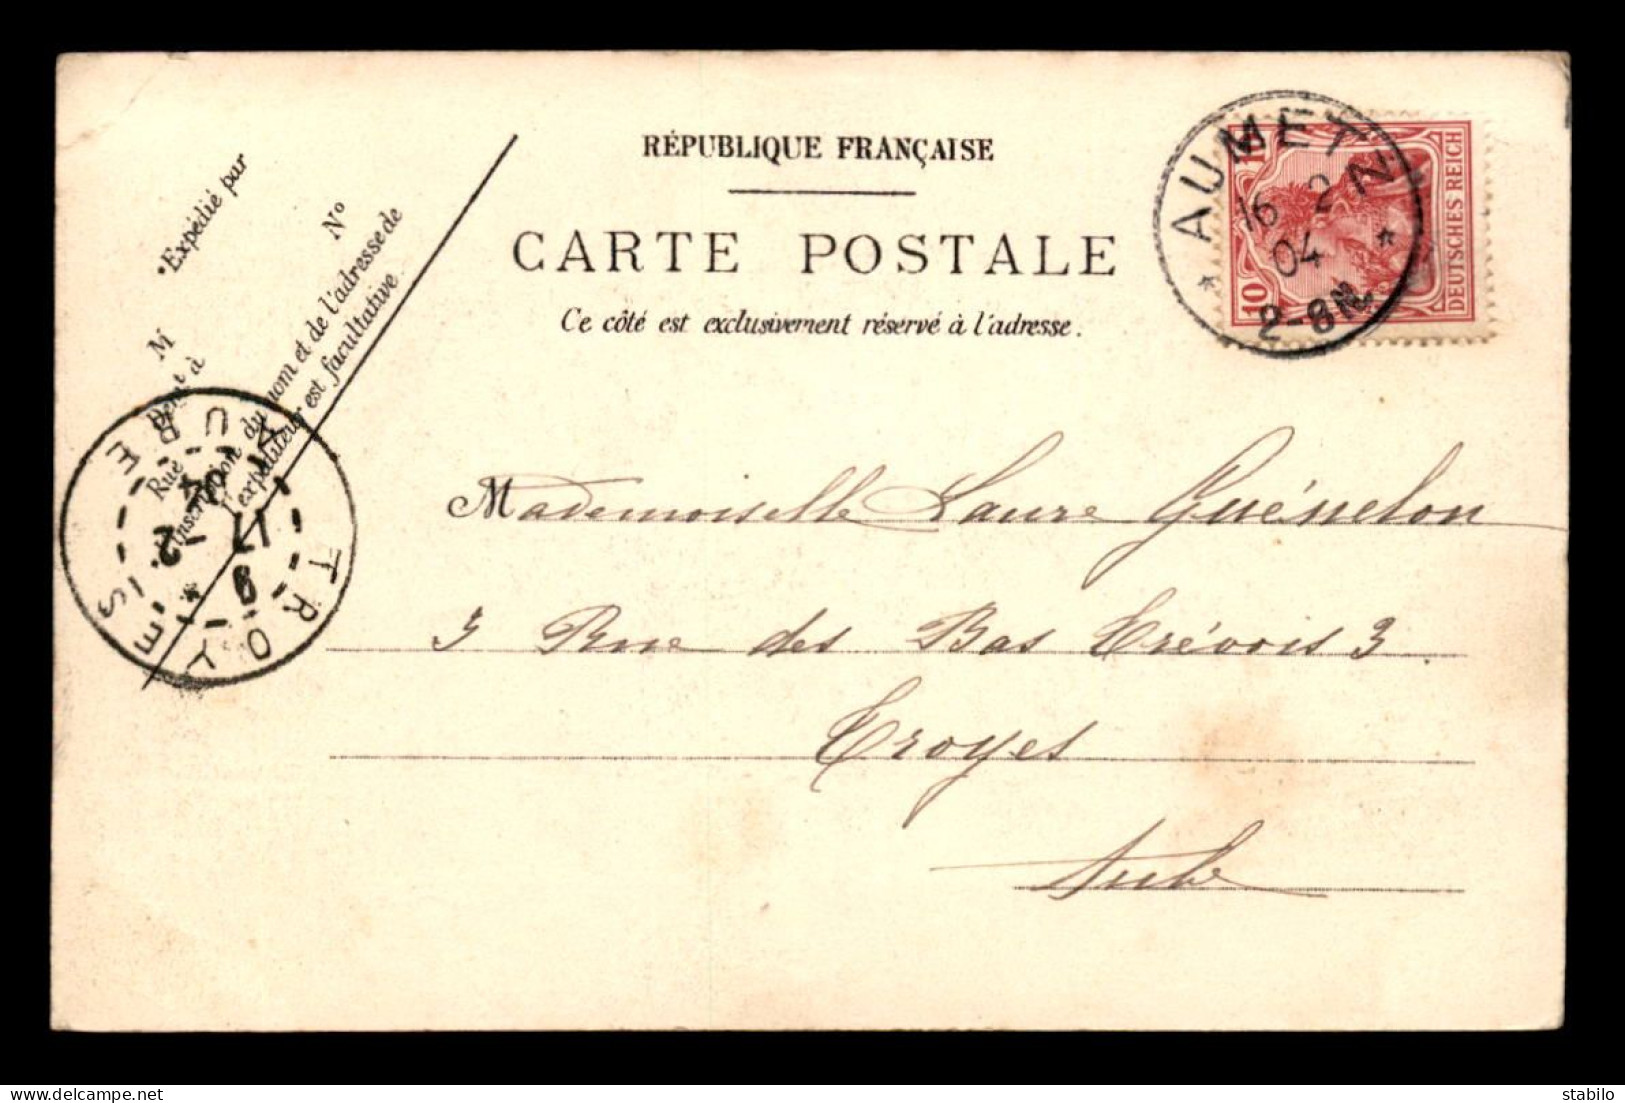 RÉPUBLIQUE FRANÇAISE
CARTE POSTALE
Ce côté est exclusivement réservé à l'adresse.
Expédié par
M
Dem^t à
Rue
N°
L'inscription du nom et de l'adresse de
l'expéditeur est facultative
AUMETZ
16 2 N
04
2-8N
10
10
DEUTSCHES REICH
TROYES
AUBE
9
17 -2
04
Mademoiselle Laure Guénelon
3 Rue des Bas Trévois 3
Troyes
Aube
stabilo
www.delcampe.net